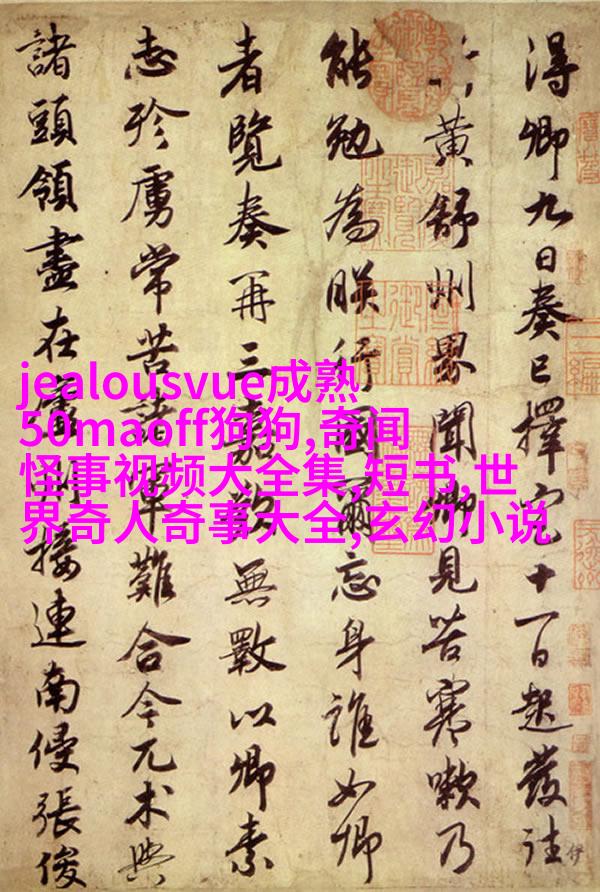 得卿九日奏已擇定十一日起發往
黃舒州界聞卿見苦寒嗽乃
能勉為朕行國爾忘身誰如卿
者覽奏再三嘉歎無斁以卿素
志殄虜常苦諸軍難合今兀朮與
諸頭領盡在廬州接連南侵張俊
jealousvue成熟
50maoff狗狗,奇闻
怪事视频大全集,短书,世
界奇人奇事大全,玄幻小说